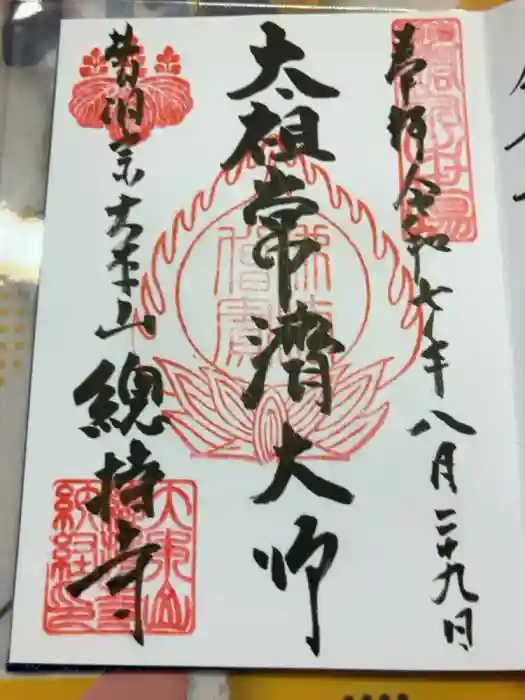 奉拝 令和七年八月二十九日
太祖常濟大師
曹洞宗大本山 總持寺
佛法
僧寶
大本山
總持寺
納経印